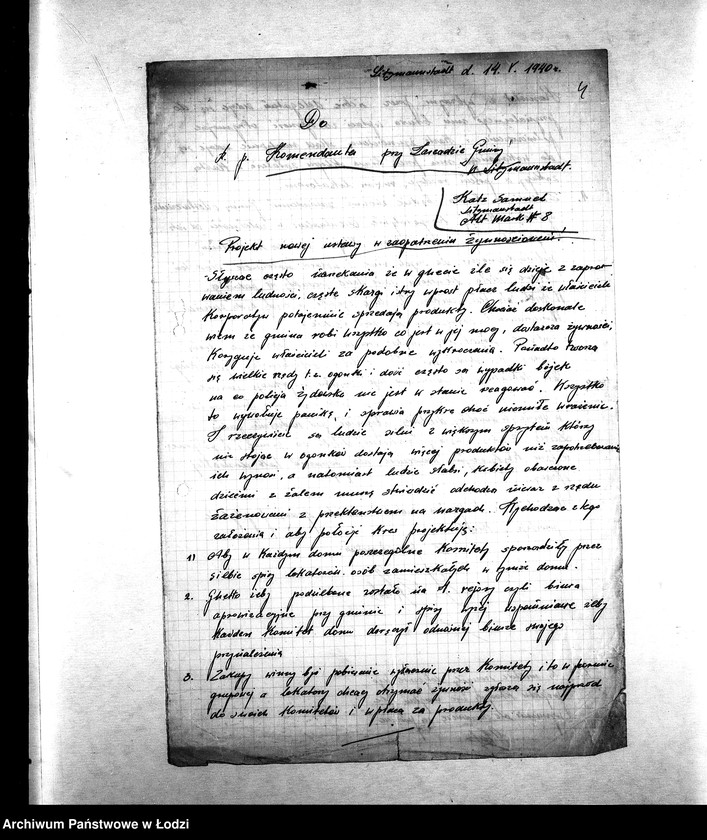 Litzmannstadt d. 14. V. 1940 r.
4
Do
p. Komendanta przy Zarządzie Gminy
w Litzmannstadt.
Katz Samuel
Litzmanstadt
Alt Mark № 8
Projekt nowej ustawy w zaopatrzeniu żywnościowem!
Słysząc często narzekania że w ghecie źle się dzieje z zapro-
waniem ludności, częste skargi i try wprost płacz ludzi że właściciele
Korporatyw potajemnie sprzedają produkty. Chociaż doskonale
wiem że gmina robi wszystko co jest w jej mocy, dostarcza żywności,
Karyguje właścicieli za podobne wykroczenia. Ponadto tworzą
się wielkie rzędy t.z. ogonki i dość często są wypadki bójek
na co policja żydowska nie jest w stanie reagować. Wszystko
to wywołuje panikę, i sprawia przykre dość niemiłe wrażenie.
I rzeczywiście są ludzie silni z większym sprytem którzy
nie stojąc w ogonków dostają więcej produktów niż zapotrzebowanie
ich wynosi, a natomiast ludzie słabsi, kobiety obarczone
dziećmi z żalem muszą odchodzą nieraz z rzędu
zażenowani z przekleństwem na wargach. Wychodząc z tego
założenia i aby położyć kres projektuję:
1) Aby w każdym domu poszczególne Komitety sporządziły przez
siebie spisy lokatorów osób zamieszkałych w tymże domu.
2. Ghetto żeby podzielone zostało na rejony czyli biura
aprowizacyjne przy gminie i spisy wyżej wspomniane żeby
każden Komitet domu doręczył odnośnej biurze swojego
przynależenia
3. Zakupy winny być pobierane wyłącznie przez Komitety i to w formie
grupowej a lokatorzy chcący otrzymać żywność zgłoszą się najprzód
do swoich Komitetów i wpłacą za produkty.
Archiwum Państwowe w Łodzi